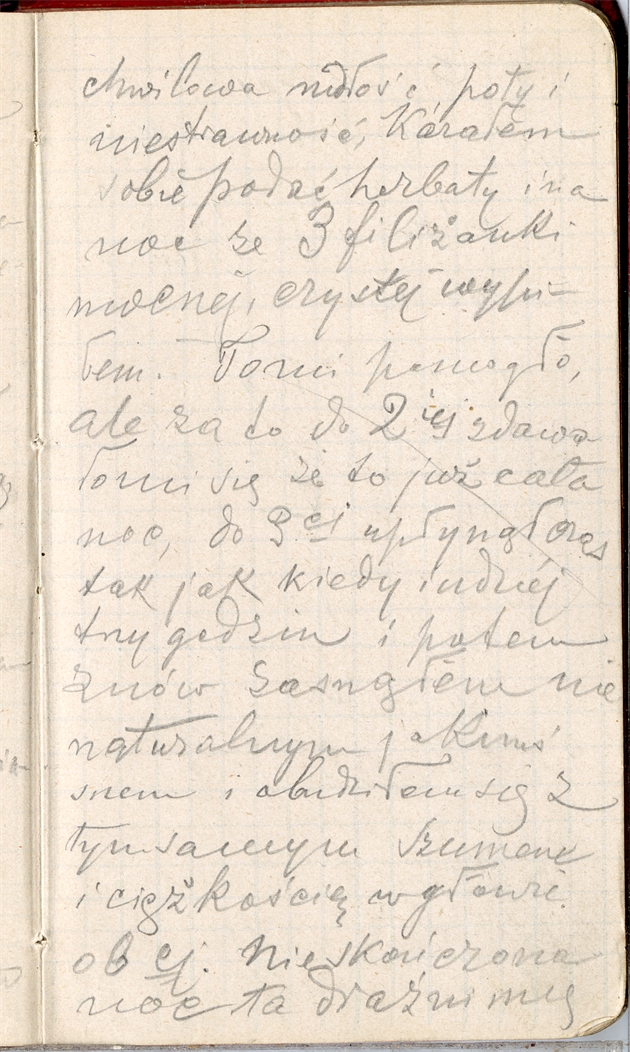 chwilowa mdłość poty i
niestrawność, Kazałem
sobie podać herbaty i na
noc ze 3 filiżanki
mocnej, czystej wypi-
łem. To mi pomogło,
ale za to do 2iej zdawa
ło mi się że to już cała
noc, do 3ej upłynął czas
tak jak kiedy indziej
trzy godzin i potem
znów zasnąłem nie
naturalnym jakimś
snem i obudziłem się z
tym samym szumem
i ciężkością w głowie.
o 6 ej. Nieskończona
noc ta drażni mię